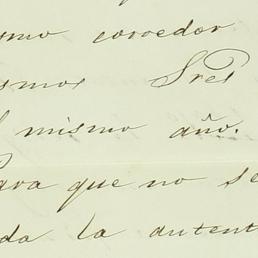 smo corredor
smos Sres
mismo año.
Para que no se
da la autent